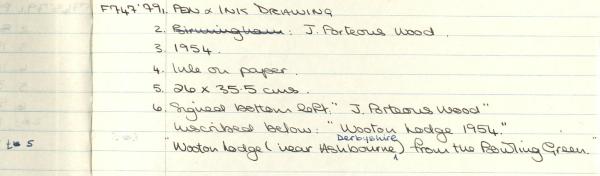 F747'79. 1. PEN & INK DRAWING
2. Birmingham: J. Porteous Wood.
3. 1954.
4. Ink on paper.
5. 26 x 35.5 cms.
6. Signed bottom left: "J. Porteous Wood"
Inscribed below: "Wooton Lodge 1954."
Derbyshire
"Wooton Lodge (near Ashbourne) from the Bowling Green."